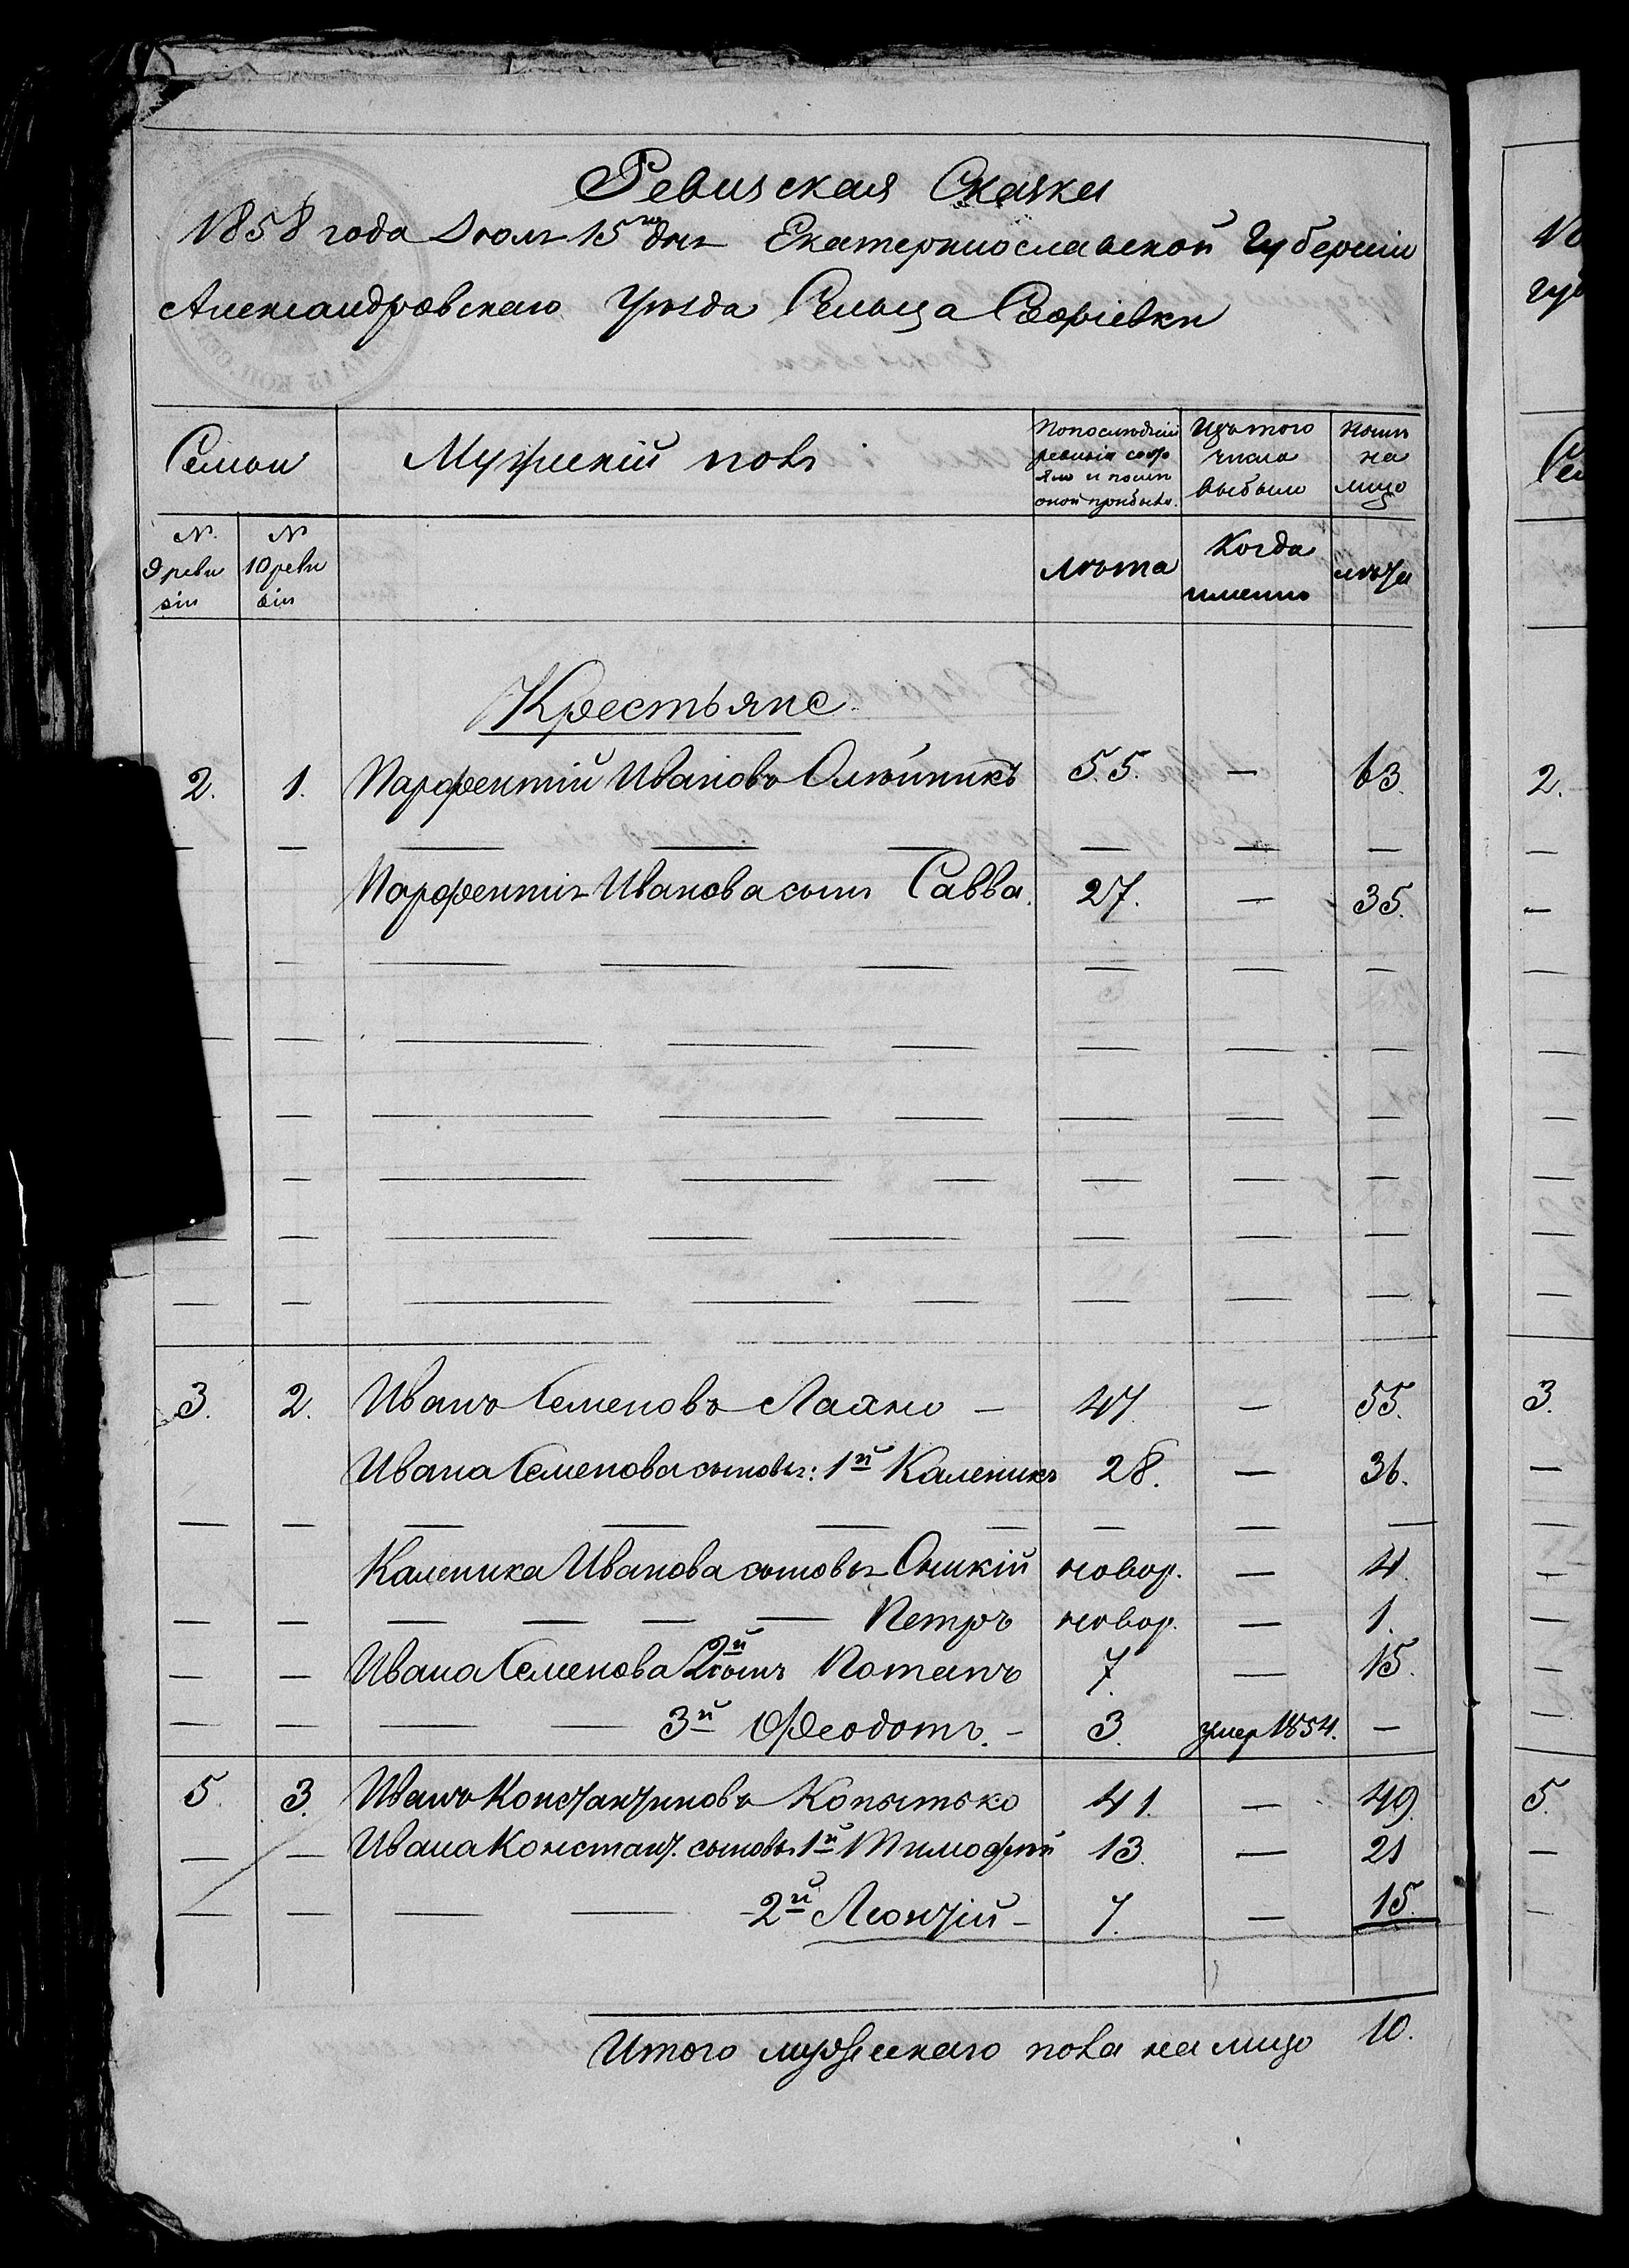 Ревизская Сказка
1858 года Июля 15го дня Екатеринославской Губерніи
Александровскаго Уѣзда Сельца Софіевки
Семьи
Мужескій полъ
По послѣдней ревизіи состояло и послѣ оной прибыло.
Изъ того числа выбыло
Нынѣ на лицо
№ 9 ревизіи
№ 10 ревизіи
Лѣта
Когда именно
лѣта
Крестьяне
2. 1. Парфентій Ивановъ Олѣйникъ 55. — 63.
— — — — — — — —
Парфентія Иванова сынъ Савва. 27. — 35.
— — — — — — —
— — — — — — — —
— — — — — — —
— — — — — — —
— — — — — — — —
— — — — — — — —
3. 2. Иванъ Семеновъ Лахно — 47 — 55.
Ивана Семенова сыновья: 1й Каленикъ 28. — 36.
— — — — — — — — —
Каленика Иванова сыновья Оникій новор. — 4
— — — — — — Петръ новор. — 1.
— — Ивана Семенова 2й сынъ Потапъ 7. — 15.
— — — — 3й Феодотъ. — 3. умер 1854. —
5. 3. Иванъ Константиновъ Копытько 41. — 49.
— — Ивана Констант. сыновья 1й Тимофей 13. — 21
— — — — 2й Леонтій — 7. — 15.
Итого мужескаго пола на лицо 10.
2.
3.
5.